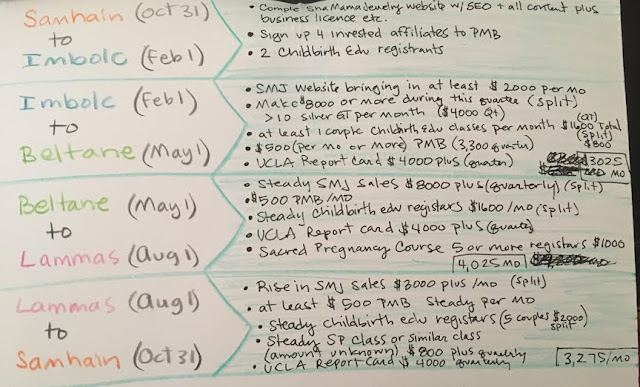 Samhain (Oct 31)
to
Imbolc (Feb 1)
• Comple ShaMamaJewelry website w/SEO + all content plus
business licence etc.
• Sign up 4 invested affiliates to PMB
• 2 Childbirth Edu registrants
Imbolc (Feb 1)
to
Beltane (May 1)
• SMJ website bringing in at least $2000 per mo
• Make $8000 or more during this quarter (split)
>10 silver GT per month ($4000 Qt)
• at least 1 couple Childbirth Edu classes per month $1600 Total
(QT)
(split)
$800
• $500 (per mo or more) PMB (3,300 quarter)
• UCLA Rreport Card $4000 plus (quarter)
3025
MO
Beltane (May 1)
to
Lammas (Aug 1)
• Steady SMJ Sales $8000 plus (quarterly) (split)
• $500 PMB/MO
• Steady Childbirth edu registars $1600/mo (split)
• UCLA Report card $4000 plus (quarter)
• Sacred Pregnancy Course 5 or more registars $1000
4,025 MO
Lammas (Aug 1)
to
Samhain (Oct 31)
• Rise in SMJ Sales $3000 plus/mo (split)
• at least $500 PMB Steady per mo
• Steady childbirth edu registars (5 couples $2000)
split
• Steady SP class or similar class
(amount unknown) $800 plus quarterly
• UCLA Report Card $4000 quarterly
3,275/mo